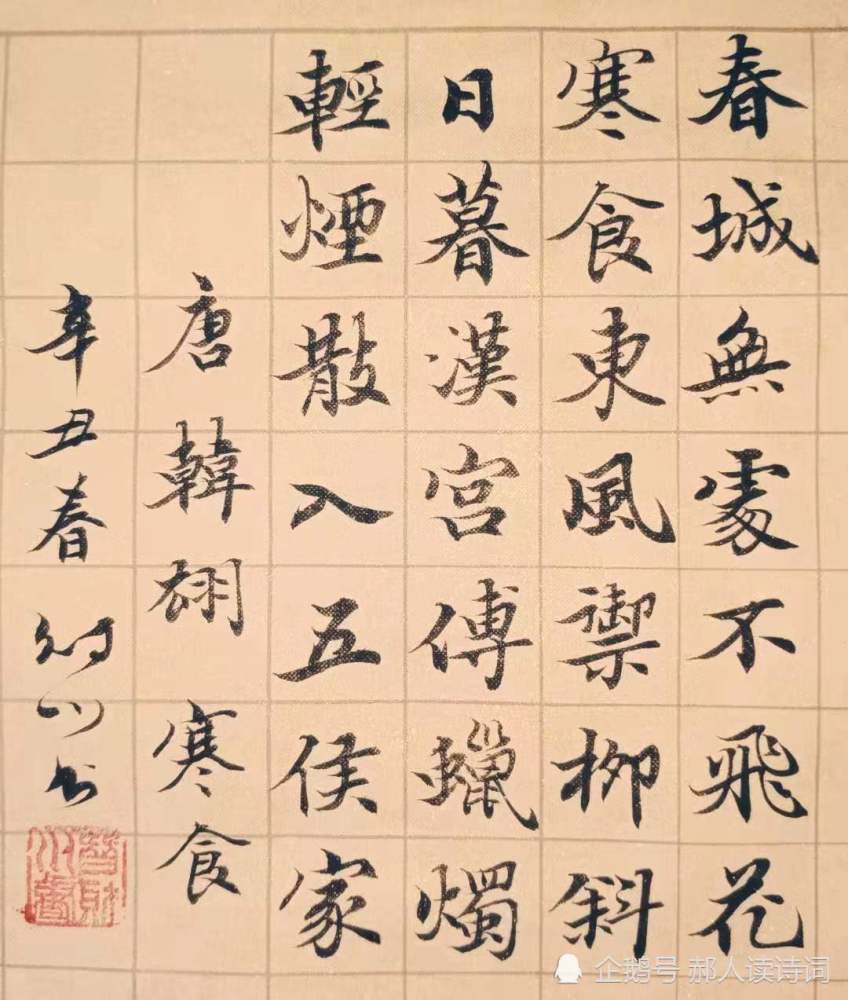 春城無處不飛花
寒食東風禦柳斜
日暮漢宮傳蠟燭
輕煙散入五侯家
唐韓翃 寒食
辛丑春
企鹅号 郝人读诗词